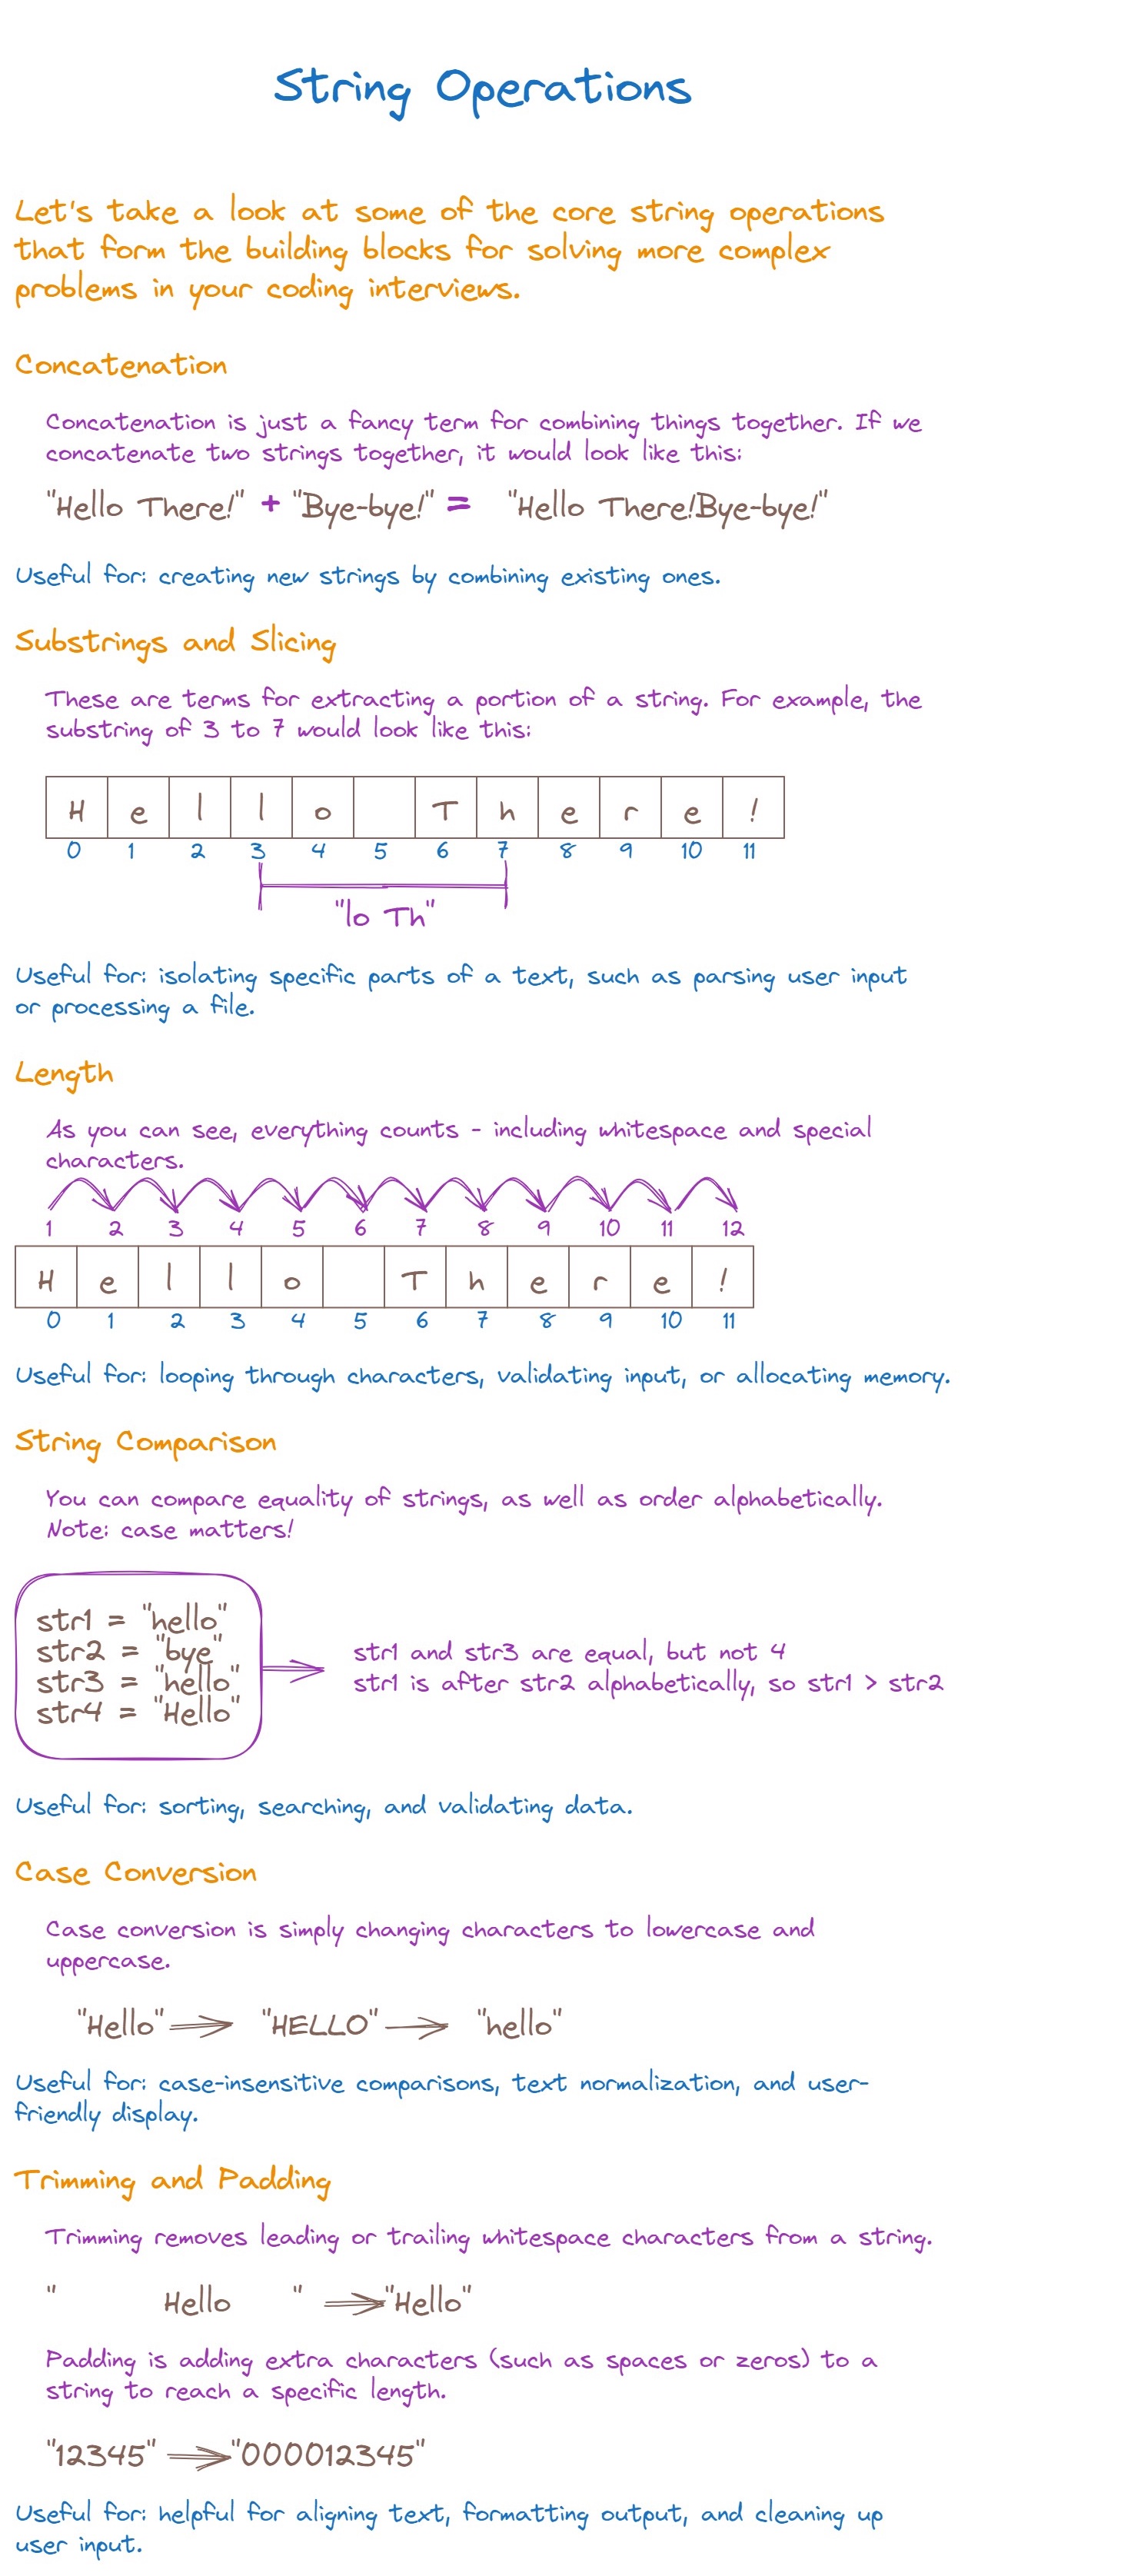 String Operations
Let's take a look at some of the core string operations
that form the building blocks for solving more complex
problems in your coding interviews.
Concatenation
Concatenation is just a fancy term for combining things together. If we
concatenate two strings together, it would look like this:
"Hello There!" + "Bye-bye!" = "Hello There!Bye-bye!"
Useful for: creating new strings by combining existing ones.
Substrings and Slicing
These are terms for extracting a portion of a string. For example, the
substring of 3 to 7 would look like this:
H e l l o T h e r e !
0 1 2 3 4 5 6 7 8 9 10 11
"lo Th"
Useful for: isolating specific parts of a text, such as parsing user input
or processing a file.
Length
As you can see, everything counts - including whitespace and special
characters.
1 2 3 4 5 6 7 8 9 10 11 12
H e l l o T h e r e !
0 1 2 3 4 5 6 7 8 9 10 11
Useful for: looping through characters, validating input, or allocating memory.
String Comparison
You can compare equality of strings, as well as order alphabetically.
Note: case matters!
str1 = "hello"
str2 = "bye"
str3 = "hello"
str4 = "Hello"
str1 and str3 are equal, but not 4
str1 is after str2 alphabetically, so str1 > str2
Useful for: sorting, searching, and validating data.
Case Conversion
Case conversion is simply changing characters to lowercase and
uppercase.
"Hello" "HELLO" "hello"
Useful for: case-insensitive comparisons, text normalization, and user-
friendly display.
Trimming and Padding
Trimming removes leading or trailing whitespace characters from a string.
" Hello " "Hello"
Padding is adding extra characters (such as spaces or zeros) to a
string to reach a specific length.
"12345" "000012345"
Useful for: helpful for aligning text, formatting output, and cleaning up
user input.